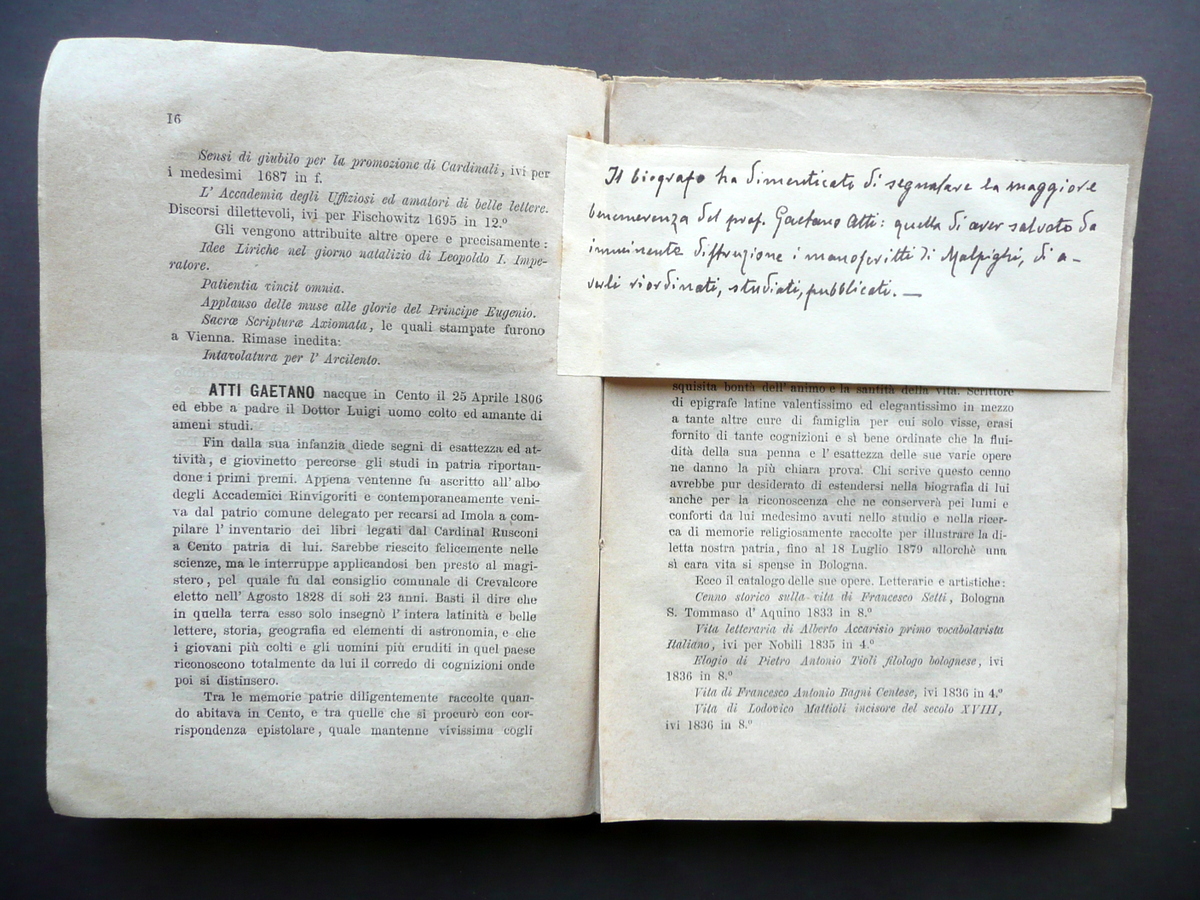 16
Sensi di giubilo per la promozione di Cardinali, ivi per
i medesimi 1687 in f.
L' Accademia degli Uffiziosi ed amatori di belle lettere.
Discorsi dilettevoli, ivi per Fischowitz 1695 in 12.º
Gli vengono attribuite altre opere e precisamente:
Idee Liriche nel giorno natalizio di Leopoldo I. Impe-
ratore.
Patientia vincit omnia.
Applauso delle muse alle glorie del Principe Eugenio.
Sacræ Scripturæ Axiomata, le quali stampate furono
a Vienna. Rimase inedita:
Intavolatura per l' Arcilento.
ATTI GAETANO nacque in Cento il 25 Aprile 1806
ed ebbe a padre il Dottor Luigi uomo colto ed amante di
ameni studi.
Fin dalla sua infanzia diede segni di esattezza ed at-
tività, e giovinetto percorse gli studi in patria riportan-
done i primi premi. Appena ventenne fu ascritto all' albo
degli Accademici Rinvigoriti e contemporaneamente veni-
va dal patrio comune delegato per recarsi ad Imola a com-
pilare l' inventario dei libri legati dal Cardinal Rusconi
a Cento patria di lui. Sarebbe riescito felicemente nelle
scienze, ma le interruppe applicandosi ben presto al magi-
stero, pel quale fu dal consiglio comunale di Crevalcore
eletto nell' Agosto 1828 di soli 23 anni. Basti il dire che
in quella terra esso solo insegnò l' intera latinità e belle
lettere, storia, geografia ed elementi di astronomia, e che
i giovani più colti e gli uomini più eruditi in quel paese
riconoscono totalmente da lui il corredo di cognizioni onde
poi si distinsero.
Tra le memorie patrie diligentemente raccolte quan-
do abitava in Cento, e tra quelle che si procurò con cor-
rispondenza epistolare, quale mantenne vivissima cogli
Il biografo ha dimenticato di segnalare la maggiore
benemerenza del prof. Gaetano Atti: quella di aver salvato da
imminente distruzione i manoscritti di Malpighi, di a-
verli riordinati, studiati, pubblicati. —
squisita bontà dell' animo e la santità della vita. Scrittore
di epigrafe latine valentissimo ed elegantissimo in mezzo
a tante altre cure di famiglia per cui solo visse, erasi
fornito di tante cognizioni e sì bene ordinate che la flui-
dità della sua penna e l' esattezza delle sue varie opere
ne danno la più chiara prova. Chi scrive questo cenno
avrebbe pur desiderato di estendersi nella biografia di lui
anche per la riconoscenza che ne conserverà pei lumi e
conforti da lui medesimo avuti nello studio e nella ricer-
ca di memorie religiosamente raccolte per illustrare la di-
letta nostra patria, fino al 18 Luglio 1879 allorchè una
sì cara vita si spense in Bologna.
Ecco il catalogo delle sue opere. Letterarie e artistiche:
Cenno storico sulla vita di Francesco Setti, Bologna
S. Tommaso d' Aquino 1833 in 8.º
Vita letteraria di Alberto Accarisio primo vocabolarista
Italiano, ivi per Nobili 1835 in 4.º
Elogio di Pietro Antonio Tioli filologo bolognese, ivi
1836 in 8.º
Vita di Francesco Antonio Bagni Centese, ivi 1836 in 4.º
Vita di Lodovico Mattioli incisore del secolo XVIII,
ivi 1836 in 8.º